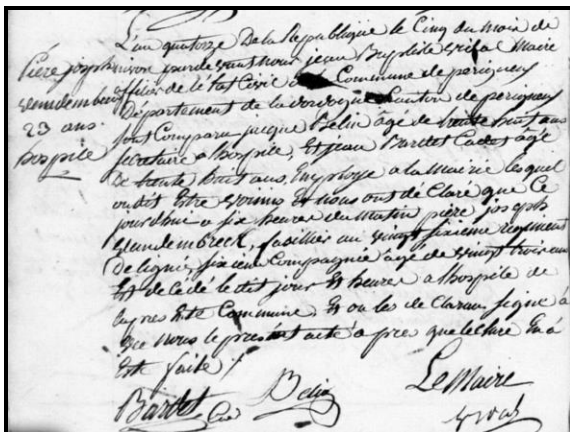 L'an quatorze De la Republique le Cinq du mois de
nivose par devant nous jean Baptiste maire
officier de l'état Civil de Commune de perigueux
Département de la dordogne Canton de perigueux
sont Comparu jacque Belin agé de trente huit ans
secretaire a l'hospice, Et jean Bardet Cadet agé
de trente huit ans, Employé a la Mairie lesquel
ont dit Estre voisins Et nous ont de Claré que Ce
jourd'hui a six heures du Matin pierre joseph
vandembreck, fusillier au vingt sixieme regiment
De ligne, sixieme Compagnie agé de vingt trois ans
Est de Cédé le dit jour Et heure a l'hospice de
Commune, Et on les de Clarans signé a
vec nous le present acte a pres que lecture En a
Eté faite /
Pierre joseph
vandembreck
23 ans.
hospice
Bardet
Belin
Le Maire